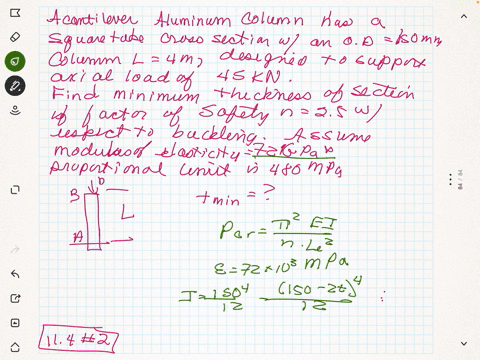 A cantilever Aluminum Column has a
Square tube cross section w/ an O.D = 150 mm
Column L = 4m, designed to support
axial load of 45 KN.
Find minimum thickness of section
if factor of Safety n = 2.5 w/
respect to buckling. Assume
modulus of elasticity = 72 GPa &
proportional limit is 480 MPa
P
B
L
A
t min = ?
Pcr = π² EI / n · Le²
E = 72 × 10³ MPa
I = 150⁴/12 (150 - 2t)⁴/12 :
11.4 #2
84 / 86